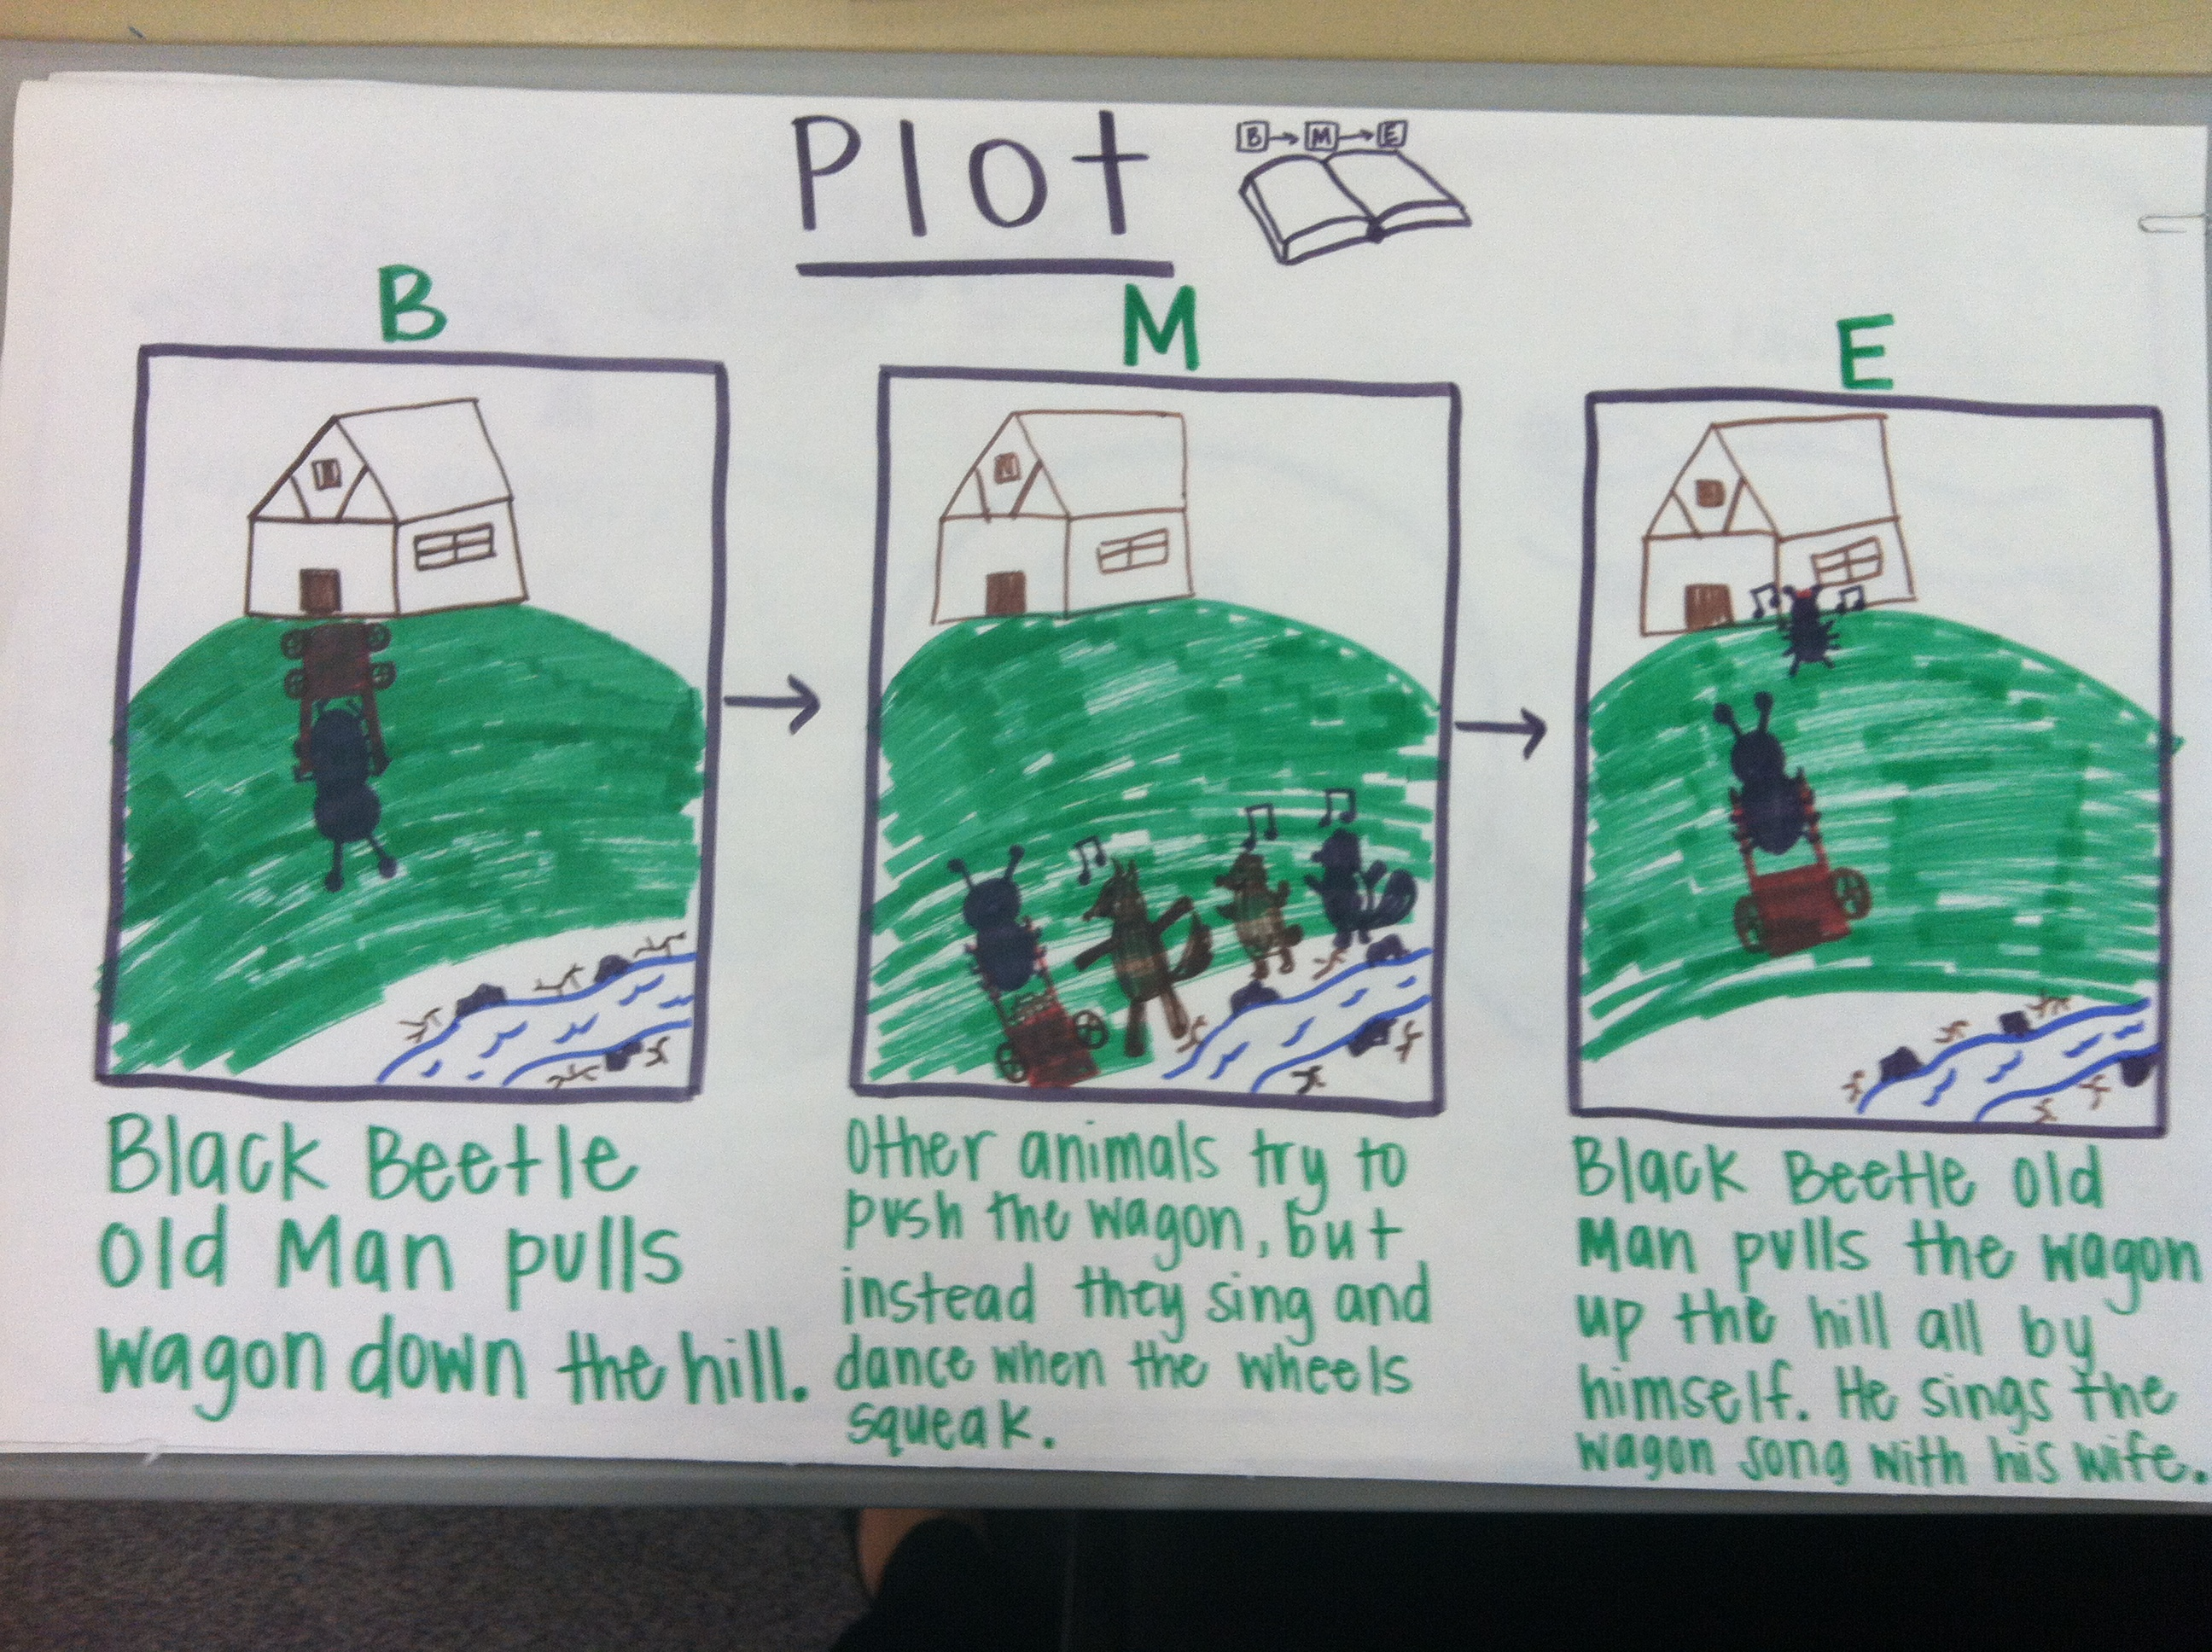 Plot
B → M → E
B
M
E
Black Beetle
Old Man pulls
wagon down the hill.
Other animals try to
push the wagon, but
instead they sing and
dance when the wheels
squeak.
Black Beetle Old
Man pulls the wagon
up the hill all by
himself. He sings the
wagon song with his wife.